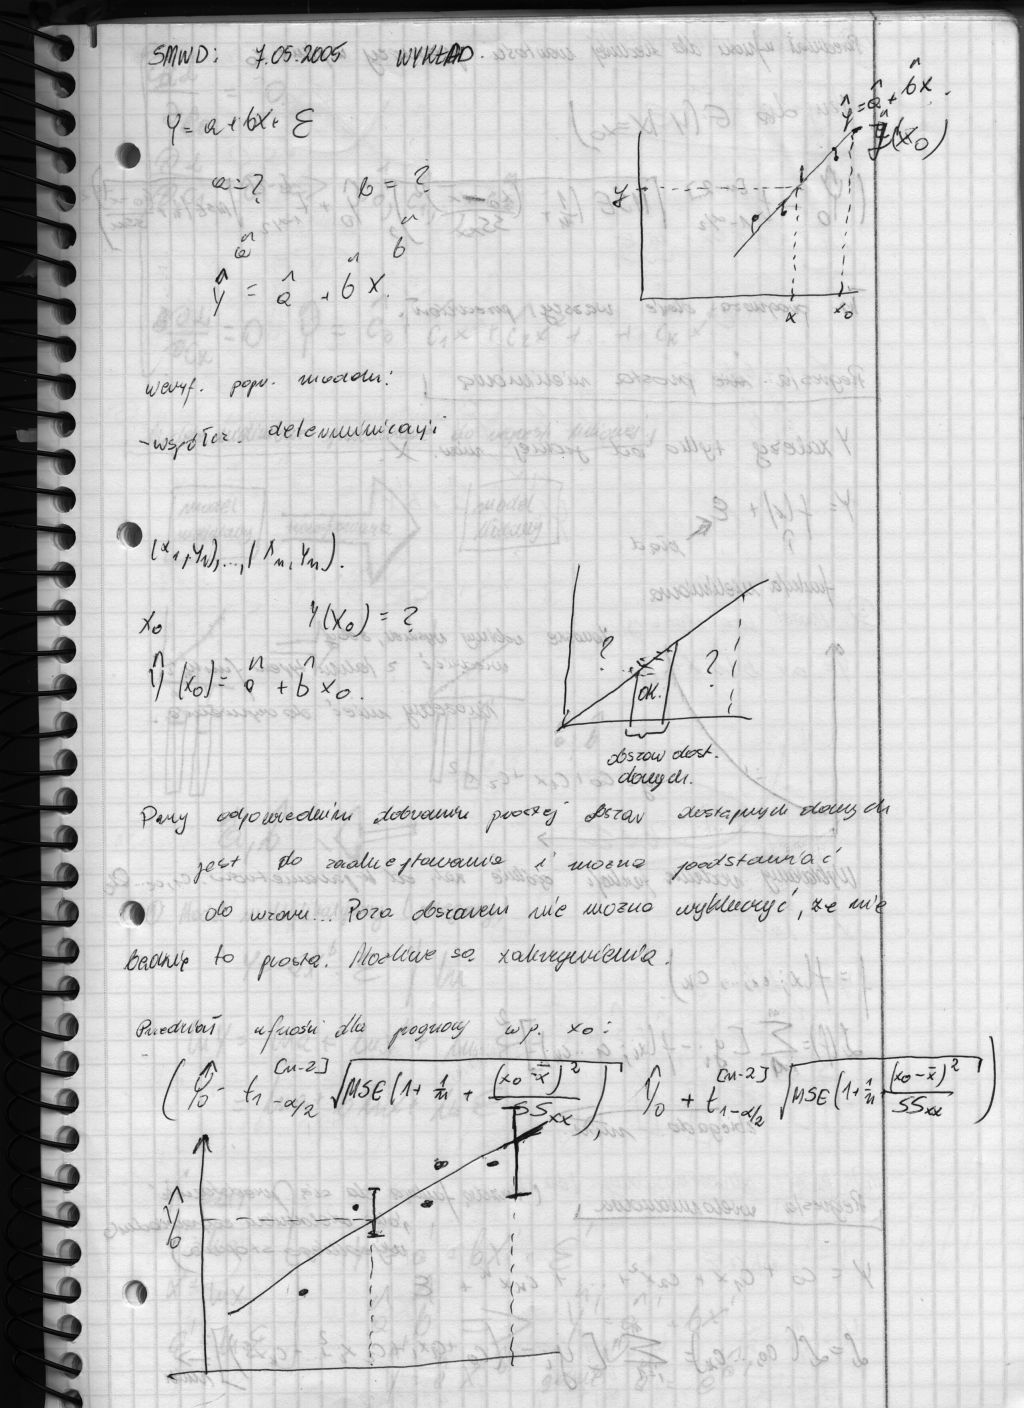 SMWD: 7.05.2005 WYKŁAD.
Y = a + bX + ε
a = ? b = ?
â b̂
Ŷ = â + b̂ X.
Ŷ = â + b̂ X.
Ŷ(X₀)
y
x x₀
weryf. popr. modelu:
- współcz. determinacji
(x₁, y₁), ..., (xₙ, yₙ).
x₀ Y(x₀) = ?
Ŷ(x₀) = â + b̂ x₀.
? OK. ?
obszar dost.
danych.
Przy odpowiednim dobraniu prostej obszar dostępnych danych
jest do zaakceptowania i można podstawiać
do wzoru... Poza obszarem nie można wykluczyć, że nie
będzie to prosta. Możliwe są zakrzywienia.
Przedział ufności dla prognozy w p. x₀:
( Ŷ₀ - t₁₋α/₂^[n-2] √MSE(1 + 1/n + (x₀ - x̄)²/SSxx) , Ŷ₀ + t₁₋α/₂^[n-2] √MSE(1 + 1/n + (x₀ - x̄)²/SSxx) )
Ŷ₀